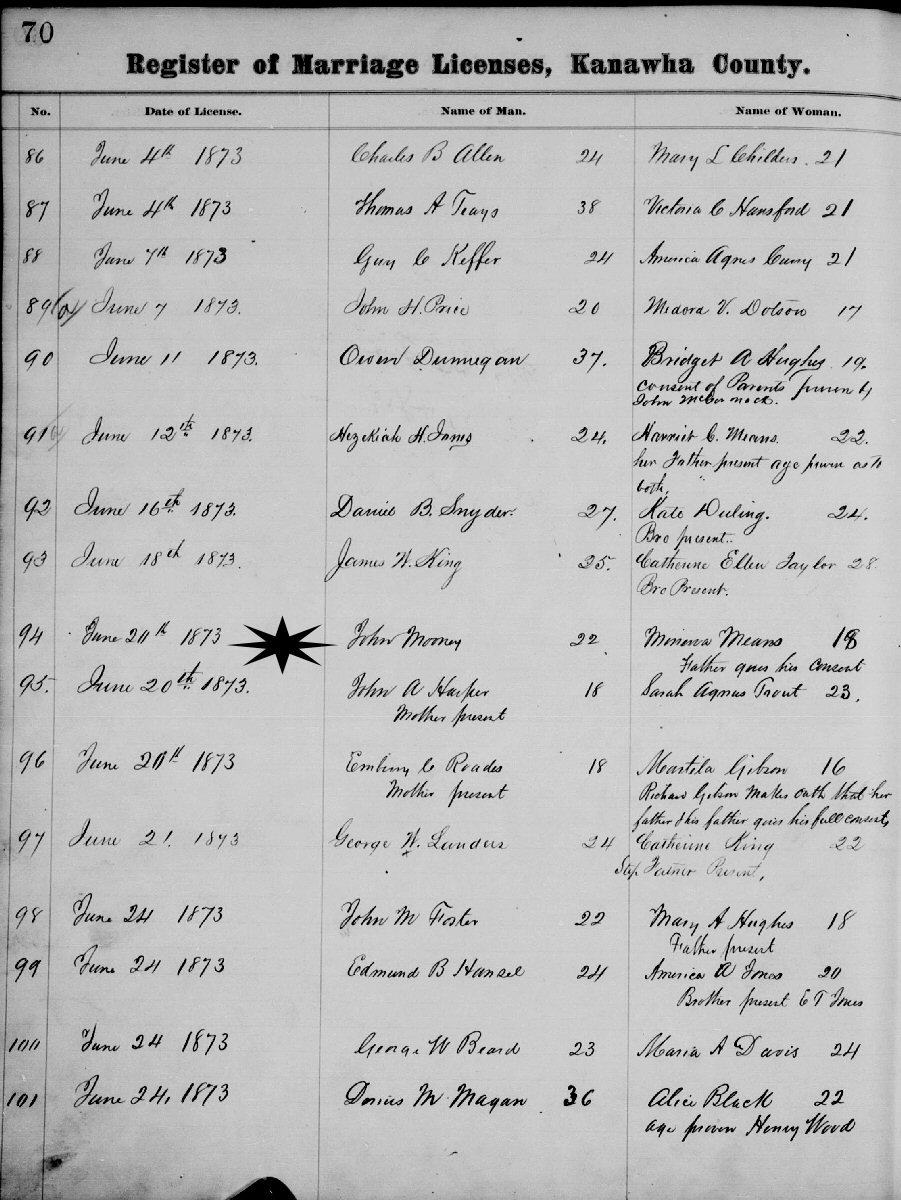 70
Register of Marriage Licenses, Kanawha County.
No. Date of License. Name of Man. Name of Woman.
86 June 4th 1873 Charles B Allen 24 Mary L Childers 21
87 June 4th 1873 Thomas A Teays 38 Victoria C Hansford 21
88 June 7th 1873 Guy C Keffer 24 America Agnes Curry 21
89 June 7 1873. John H. Price 20 Medora V. Dotson 17
90 June 11 1873. Owen Dunnegan 37. Bridget A Hughes 19.
consent of Parents proven by
John
91 June 12th 1873. Hezekiah H. James 24. Harriet C. Means. 22.
her Father present age proven as to
both.
92 June 16th 1873. Daniel B. Snyder. 27. Kate Duling. 24.
Bro present.
93 June 18th 1873. James W. King 25. Catherine Ellen Taylor 28
Bro Present.
94 June 20th 1873 John Mooney 22 Minerva Means 18
Father gives his consent
95. June 20th 1873. John A Harper 18 Sarah Agnus Trout 23.
Mother present
96 June 20th 1873 C Roades 18 Gibson 16
Mother present Richard Gibson Makes oath that her
father & his father gives his full consent,
97 June 21. 1873 George W. Landers 24 Catherine King 22
Step Father Present,
98 June 24 1873 John M Foster 22 Mary A Hughes 18
Father present
99 June 24 1873 Edmund B Hansel 24 America A Jones 20
Brother present E T Jones
100 June 24 1873 George W Beard 23 Maria A Davis 24
101 June 24, 1873 M Magan 36 Alice Black 22
age proven Henry Wood